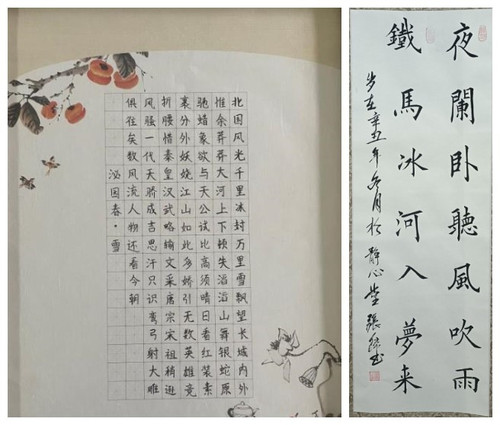 北国风光千里冰封万里雪飘望长城内外
惟余莽莽大河上下顿失滔滔山舞银蛇原
驰蜡象欲与天公试比高须晴日看红装素
裹分外妖娆江山如此多娇引无数英雄竞
折腰惜秦皇汉武略输文采唐宗宋祖稍逊
风骚一代天骄成吉思汗只识弯弓射大雕
俱往矣数风流人物还看今朝
沁园春·雪
夜闌卧聽風吹雨
鐵馬冰河入夢来
岁在辛丑年冬月於静心堂張书